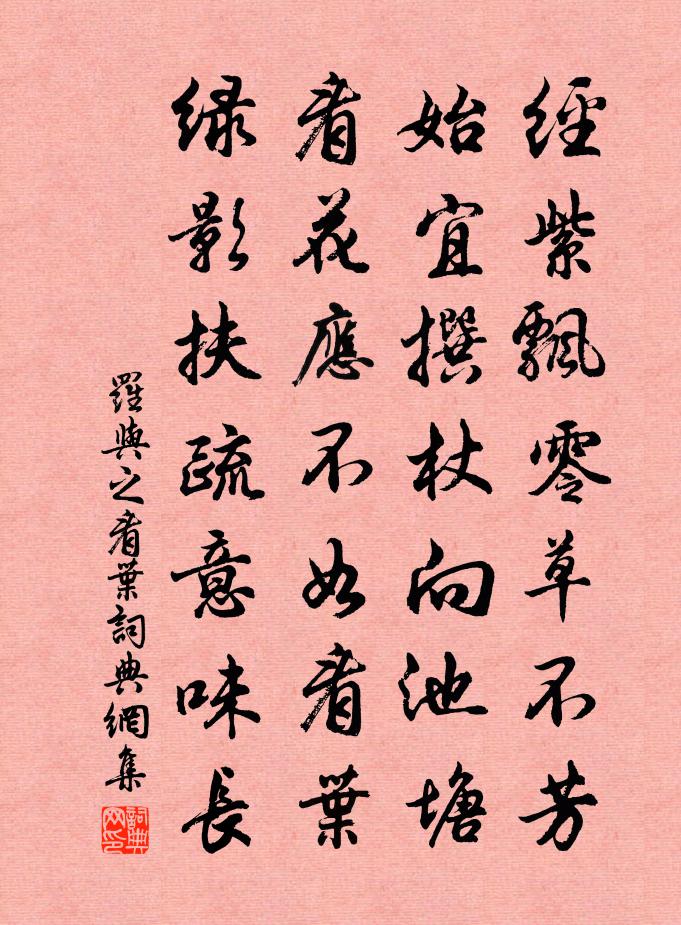 經紫飄零草不芳
始宜撰杖向池塘
看花應不如看葉
綠影扶疏意味長
羅與之看葉詞典網集
詞典網印